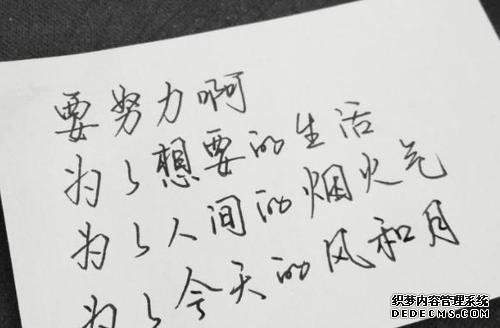 要努力啊
为了想要的生活
为了人间的烟火气
为了今天的风和月
织梦内容管理系统
DEDECMS.COM